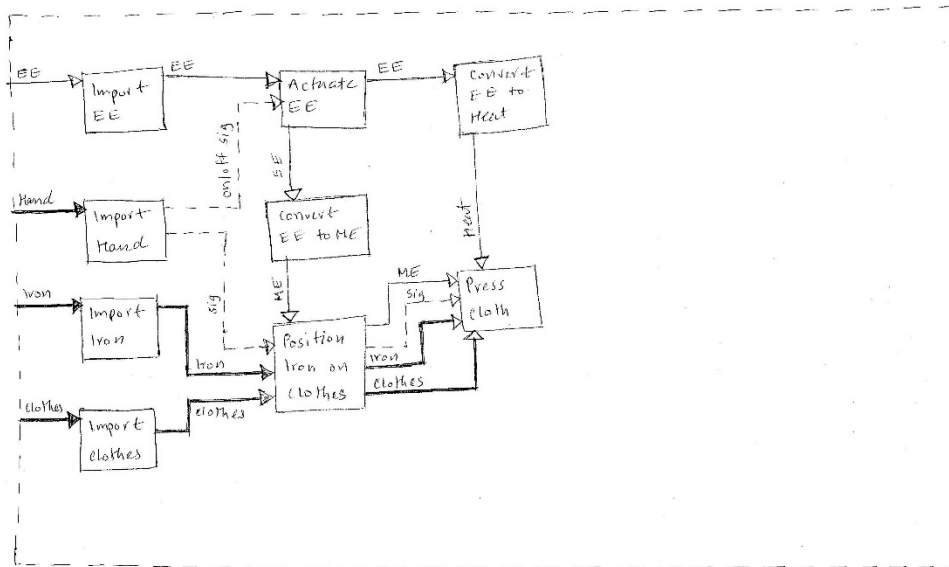 EE
Import
EE
EE
Actuate
EE
EE
Convert
EE to
Heat
on/off sig
EE
Heat
Hand
Import
Hand
Convert
EE to ME
sig
ME
Iron
Import
Iron
Iron
Position
Iron on
clothes
ME
sig
Iron
clothes
Press
cloth
clothes
Import
clothes
clothes